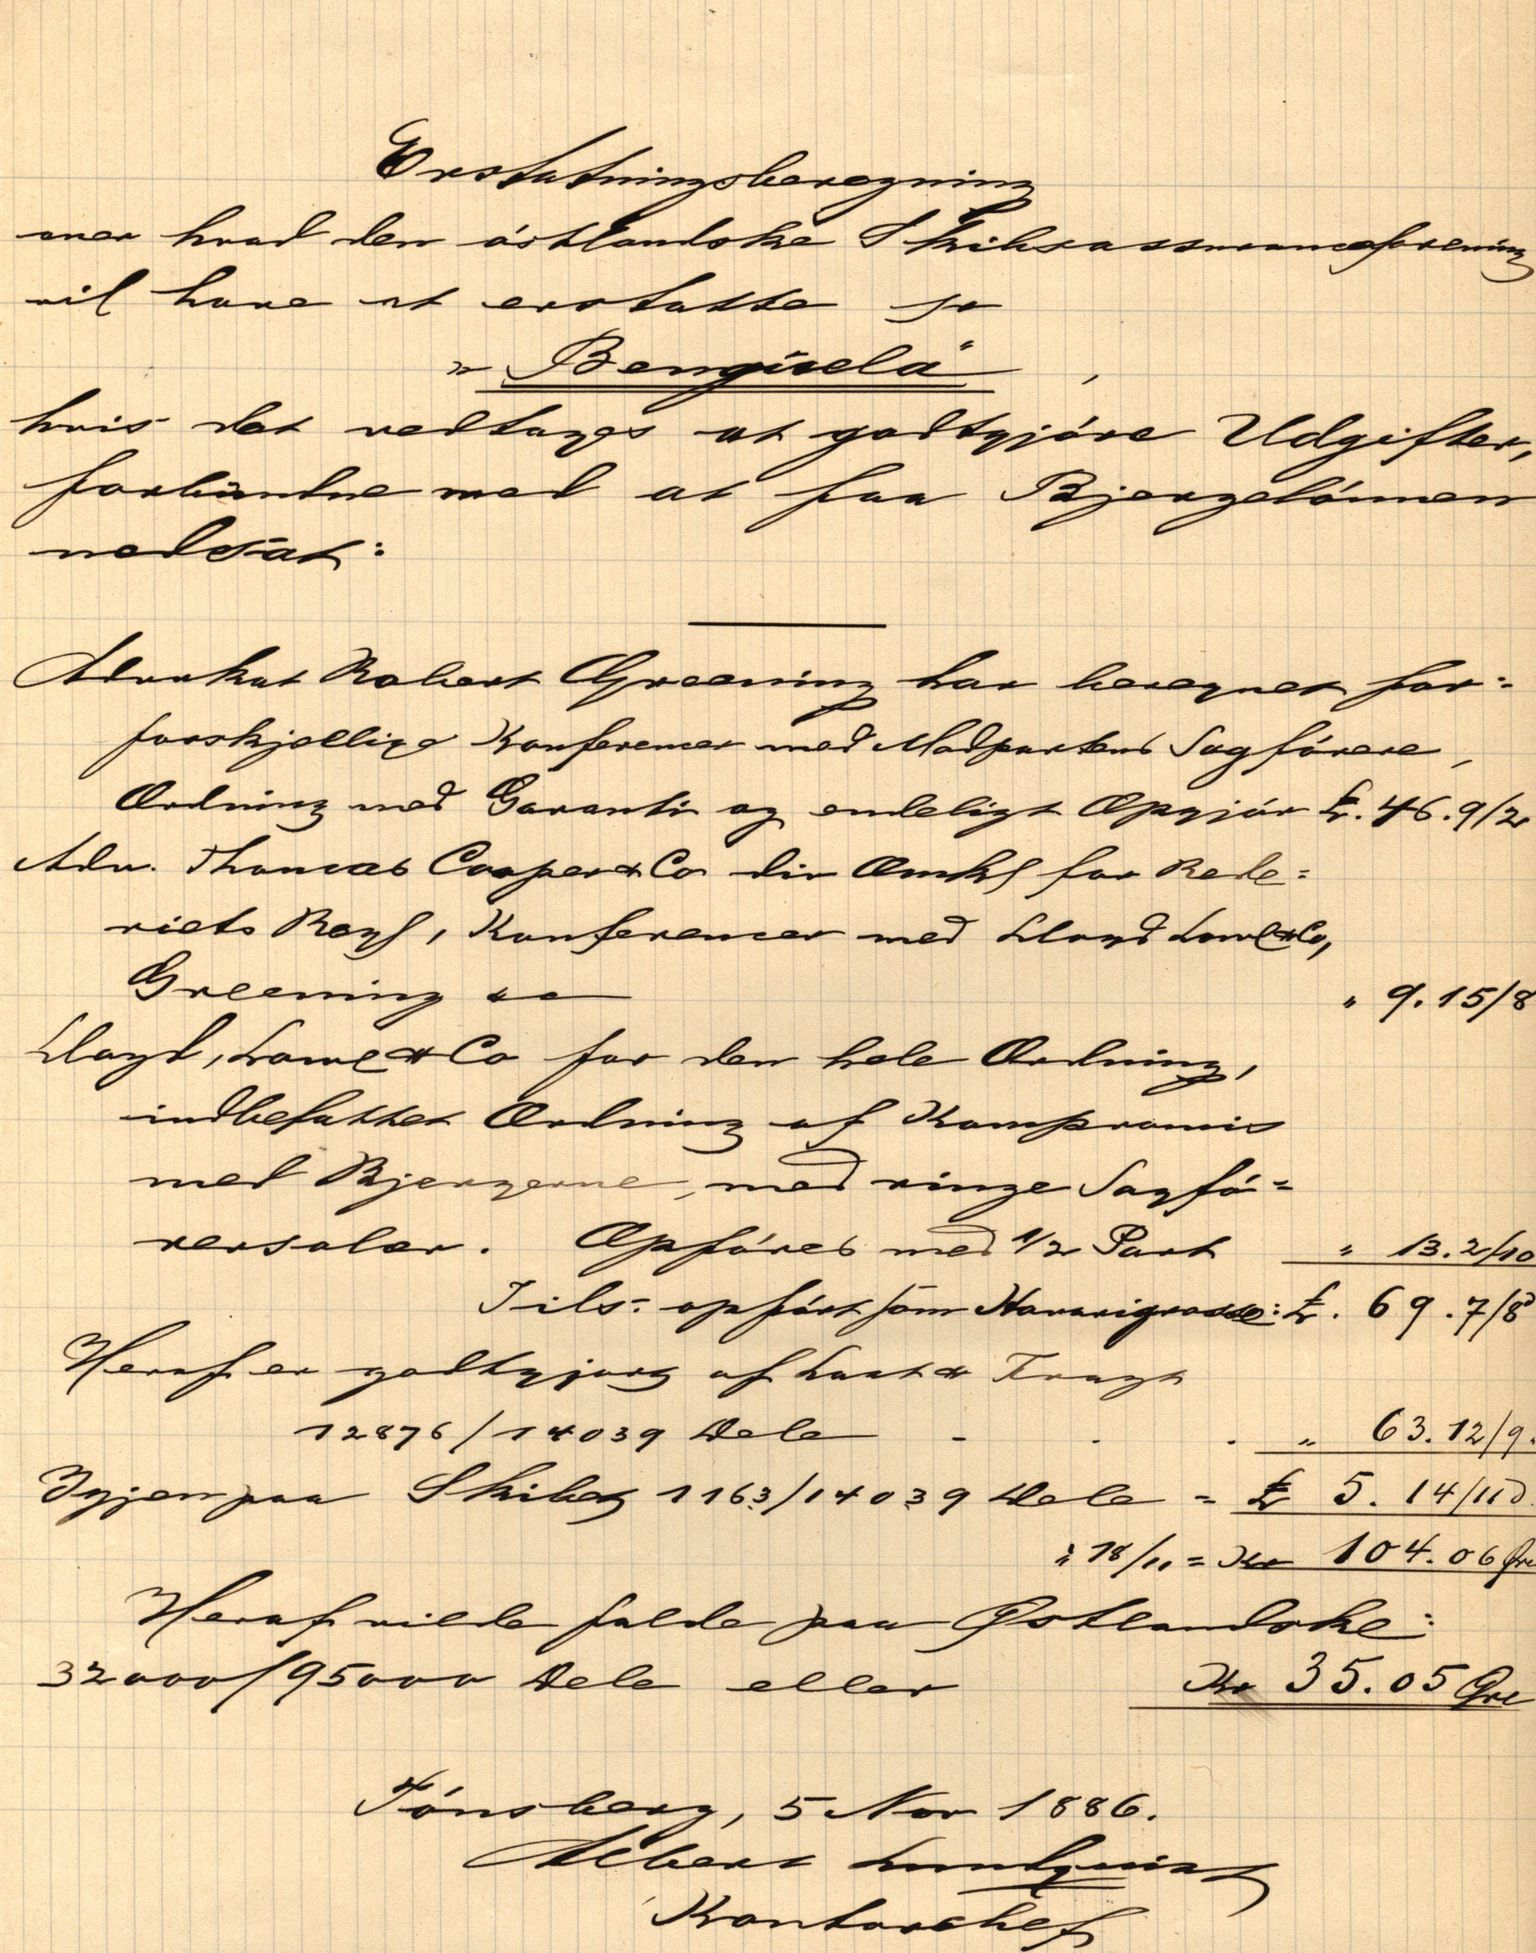 Erstatningsberegning
over hvad den östlandske Skibsassuranceforening
vil have at erstatte pr
„Bengisela",
hvis det vedtages at godtgjöre Udgifter,
forbundne med at faa Bjergelönnen
nedsat:
Advokat Robert Greening har beregnet for-
forskjellige Konferencer med Modpartens Sagförere,
Ordning med Garanti og endeligt Opgjör £. 46.9/2
Adv. Thomas Cooper & Co div Omkf for Rede=
riets Regf, Konferencer med Lloyd Lowe & Co,
Greening
" 9.15/8
Lloyd, Lowe & Co for den hele Ordning,
indbefattet Ordning af Kompromis
med Bjergerne, med ringe Sagfö=
rersalær. Opföres med 1/2 Part " 13.2/10
Tils: opfört som Havarigrosse: £. 69.7/8d
Heraf er godtgjort af Last & Fragt
12876/14039 Dele - - - " 63.12/9.
Igjen paa Skibet 1163/14039 Dele = £ 5.14/11d.
: 18/11 = Kr 104.06 Øre
Heraf vilde falde paa Østlandske:
32000/95000 Dele eller Kr 35.05 Øre
Tönsberg, 5 Nov 1886.
Albert Lundquist
Kontorchef